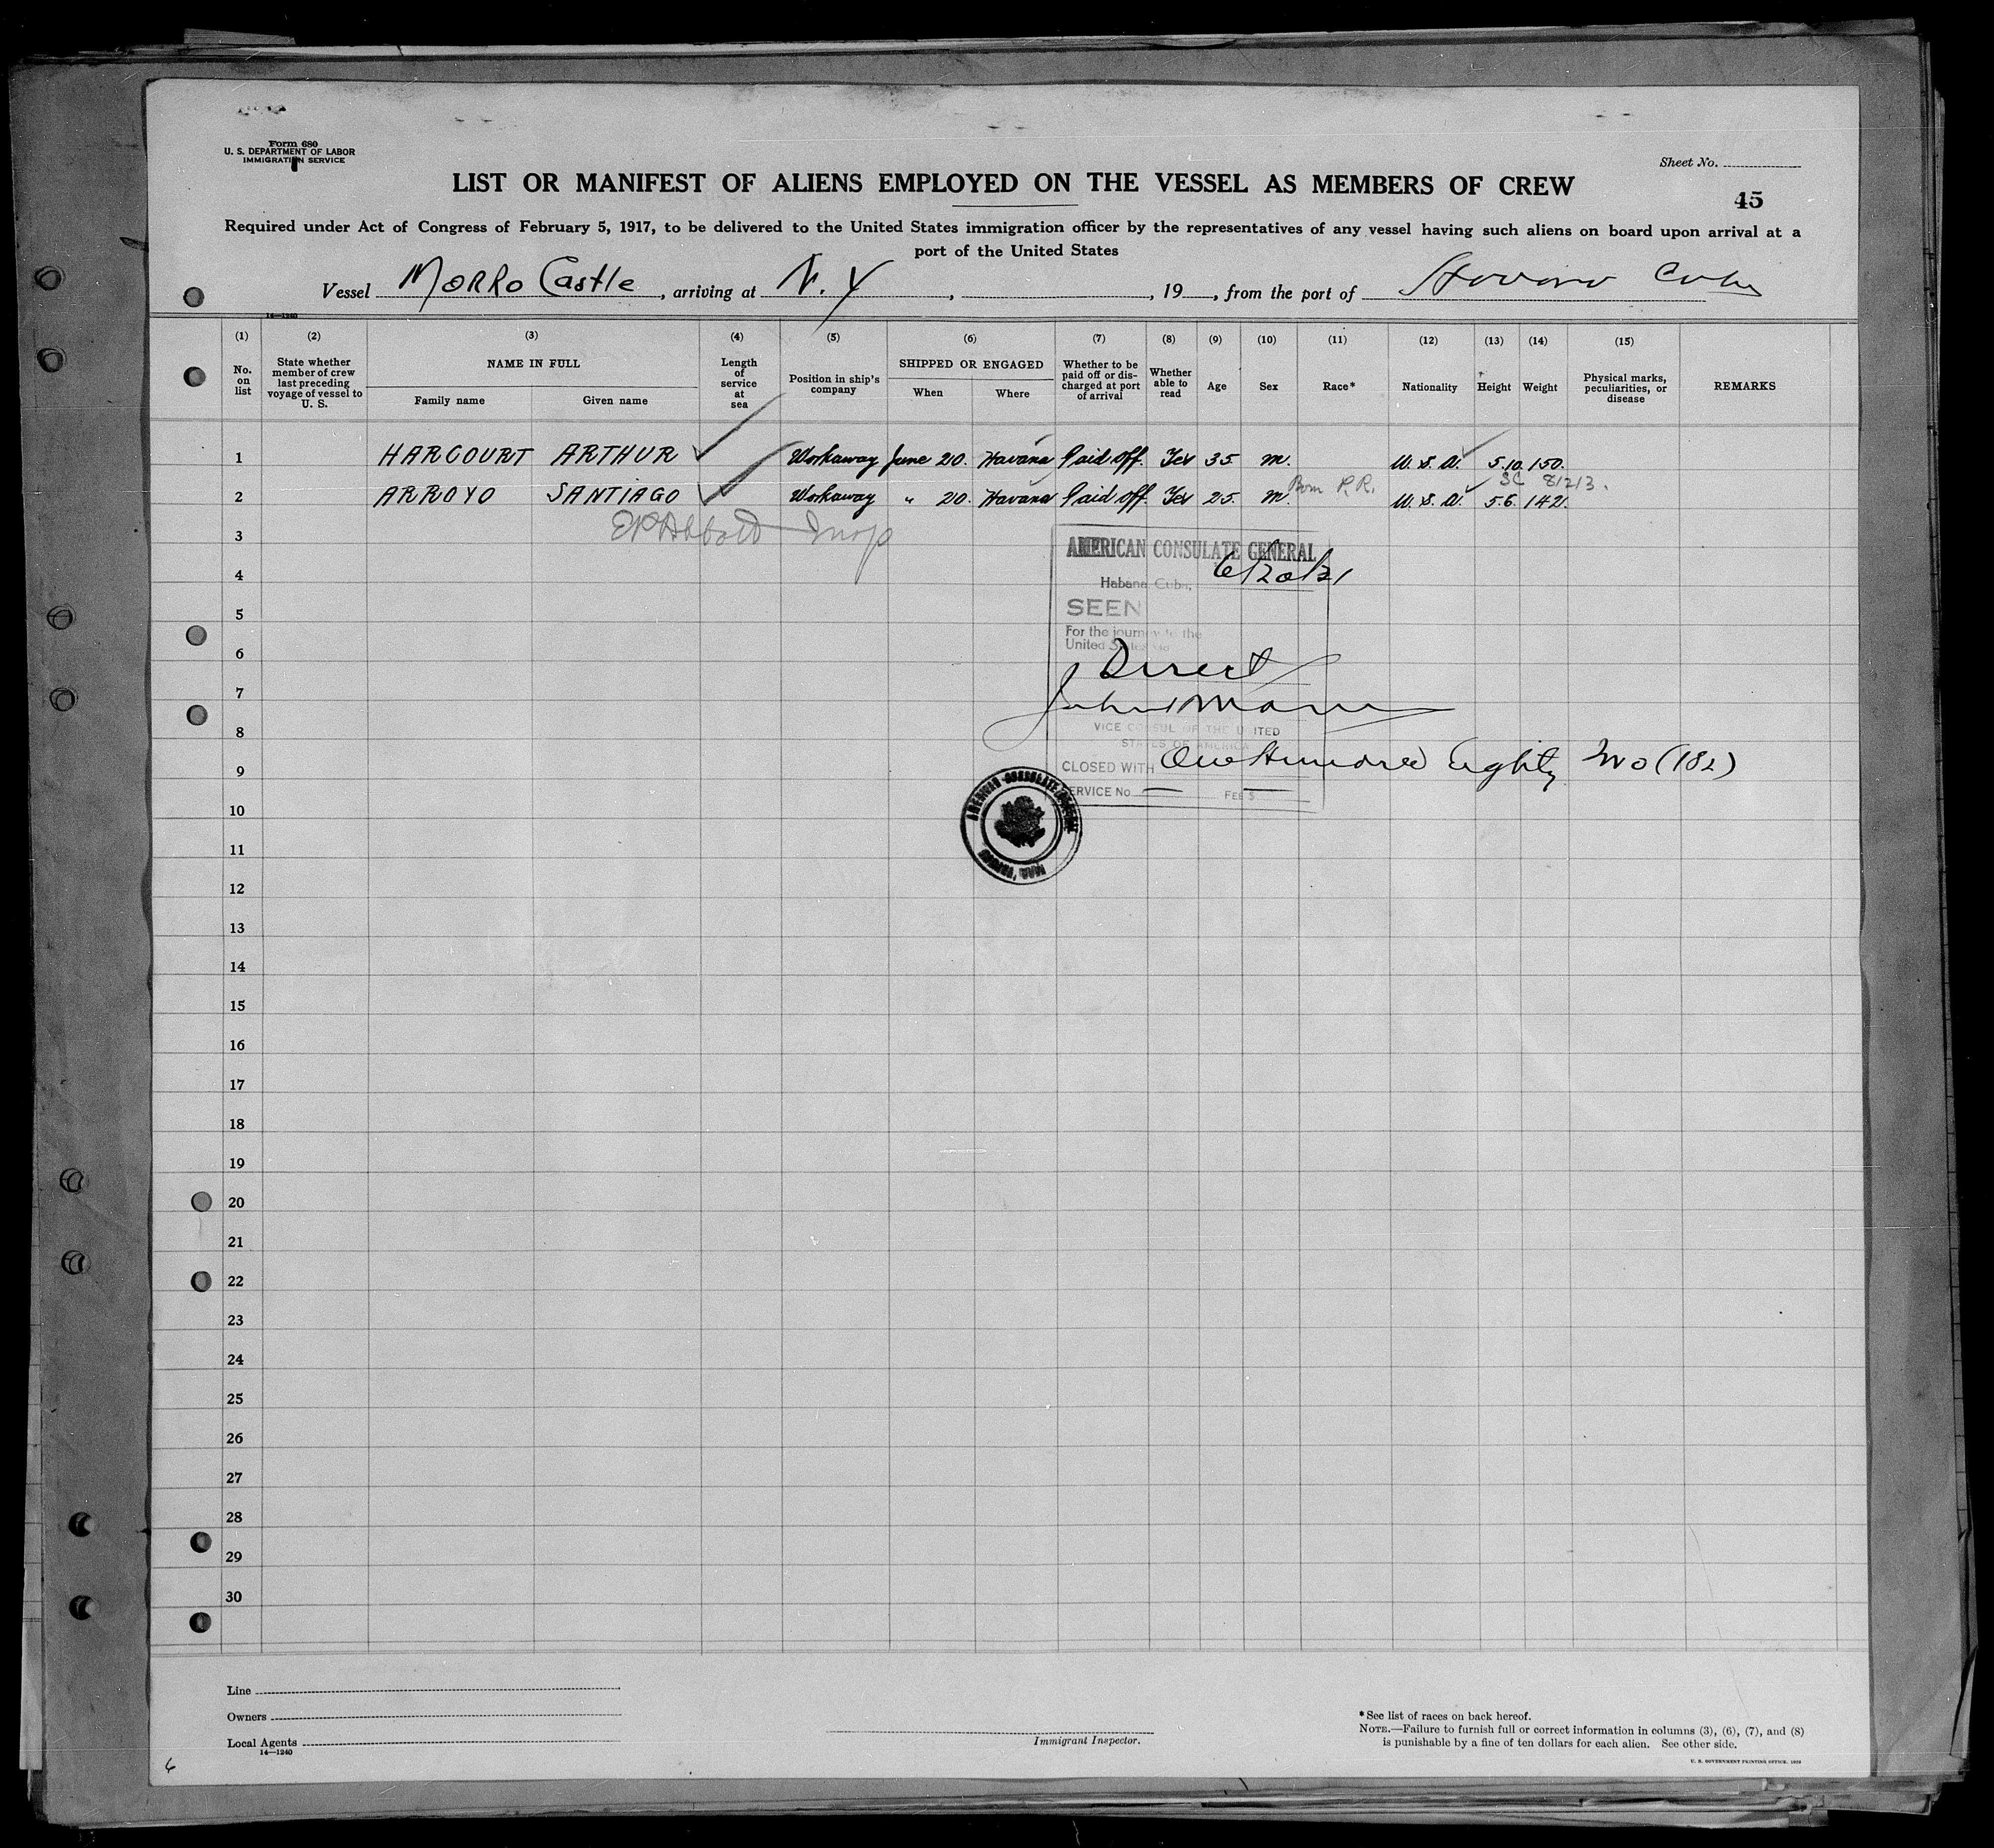 Form 680
U. S. DEPARTMENT OF LABOR
IMMIGRATION SERVICE
Sheet No.
LIST OR MANIFEST OF ALIENS EMPLOYED ON THE VESSEL AS MEMBERS OF CREW
45
Required under Act of Congress of February 5, 1917, to be delivered to the United States immigration officer by the representatives of any vessel having such aliens on board upon arrival at a
port of the United States
Vessel Morro Castle, arriving at N. Y, , 19 , from the port of Havana Cuba
14—1240
(1) (2) (3) (4) (5) (6) (7) (8) (9) (10) (11) (12) (13) (14) (15)
No. on list State whether member of crew last preceding voyage of vessel to U. S. NAME IN FULL Family name Given name Length of service at sea Position in ship's company SHIPPED OR ENGAGED When Where Whether to be paid off or discharged at port of arrival Whether able to read Age Sex Race* Nationality Height Weight Physical marks, peculiarities, or disease REMARKS
1 HARCOURT ARTHUR Workaway June 20. Havana Paid off. Yes 35 m. U. S. A. 5.10 150.
SC 81213.
2 ARROYO SANTIAGO Workaway " 20. Havana Paid off Yes 25. m. Born P.R. U. S. A. 5.6. 142.
3 EP Abbott Insp
AMERICAN CONSULATE GENERAL
4 Habana Cuba, 6/20/31
5 SEEN
For the journey to the
United States via
6 Direct
7
8 VICE CONSUL OF THE UNITED
STATES OF AMERICA
9 CLOSED WITH One Hundred Eighty Two (182)
SERVICE No. — FEE $ —
10
AMERICAN CONSULATE GENERAL
HABANA, CUBA
11
12
13
14
15
16
17
18
19
20
21
22
23
24
25
26
27
28
29
30
Line
Owners
Local Agents
14—1240
Immigrant Inspector.
*See list of races on back hereof.
NOTE.—Failure to furnish full or correct information in columns (3), (6), (7), and (8)
is punishable by a fine of ten dollars for each alien. See other side.
6